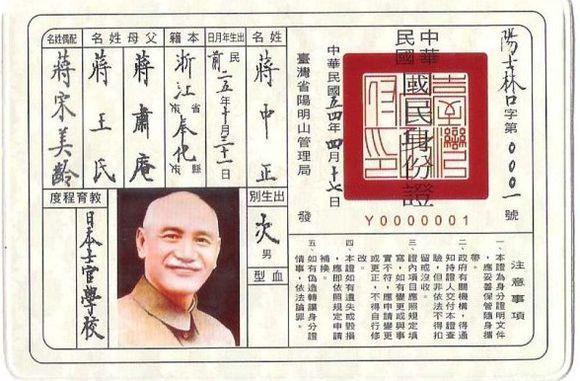 陽士林口字第0001號
中華民國
國民身份證
Y0000001
中華民國五四年四月十七日
臺灣省陽明山管理局 發
姓名
蔣中正
出生年月日
民前二五年十月三十一日
本籍
浙江省市奉化縣市
父母姓名
蔣肅庵
蔣王氏
配偶姓名
蔣宋美齡
出生別
男
血型
教育程度
日本士官學校
注意事項
一、本證為身分證明文件
應妥善保管隨身攜
帶。
二、政府有關機構，得通
知持證人交付本證查
驗，但非依法不得扣
留或沒收。
三、證內項目應照規定填
寫，如有變更或與事
實不符，應申請變更
或更正，不得自行修
改。
四、本證如有遺失或毀損
應即依照規定申請
補換。
五、如有偽造轉讓身分證
情事，依法論罪。